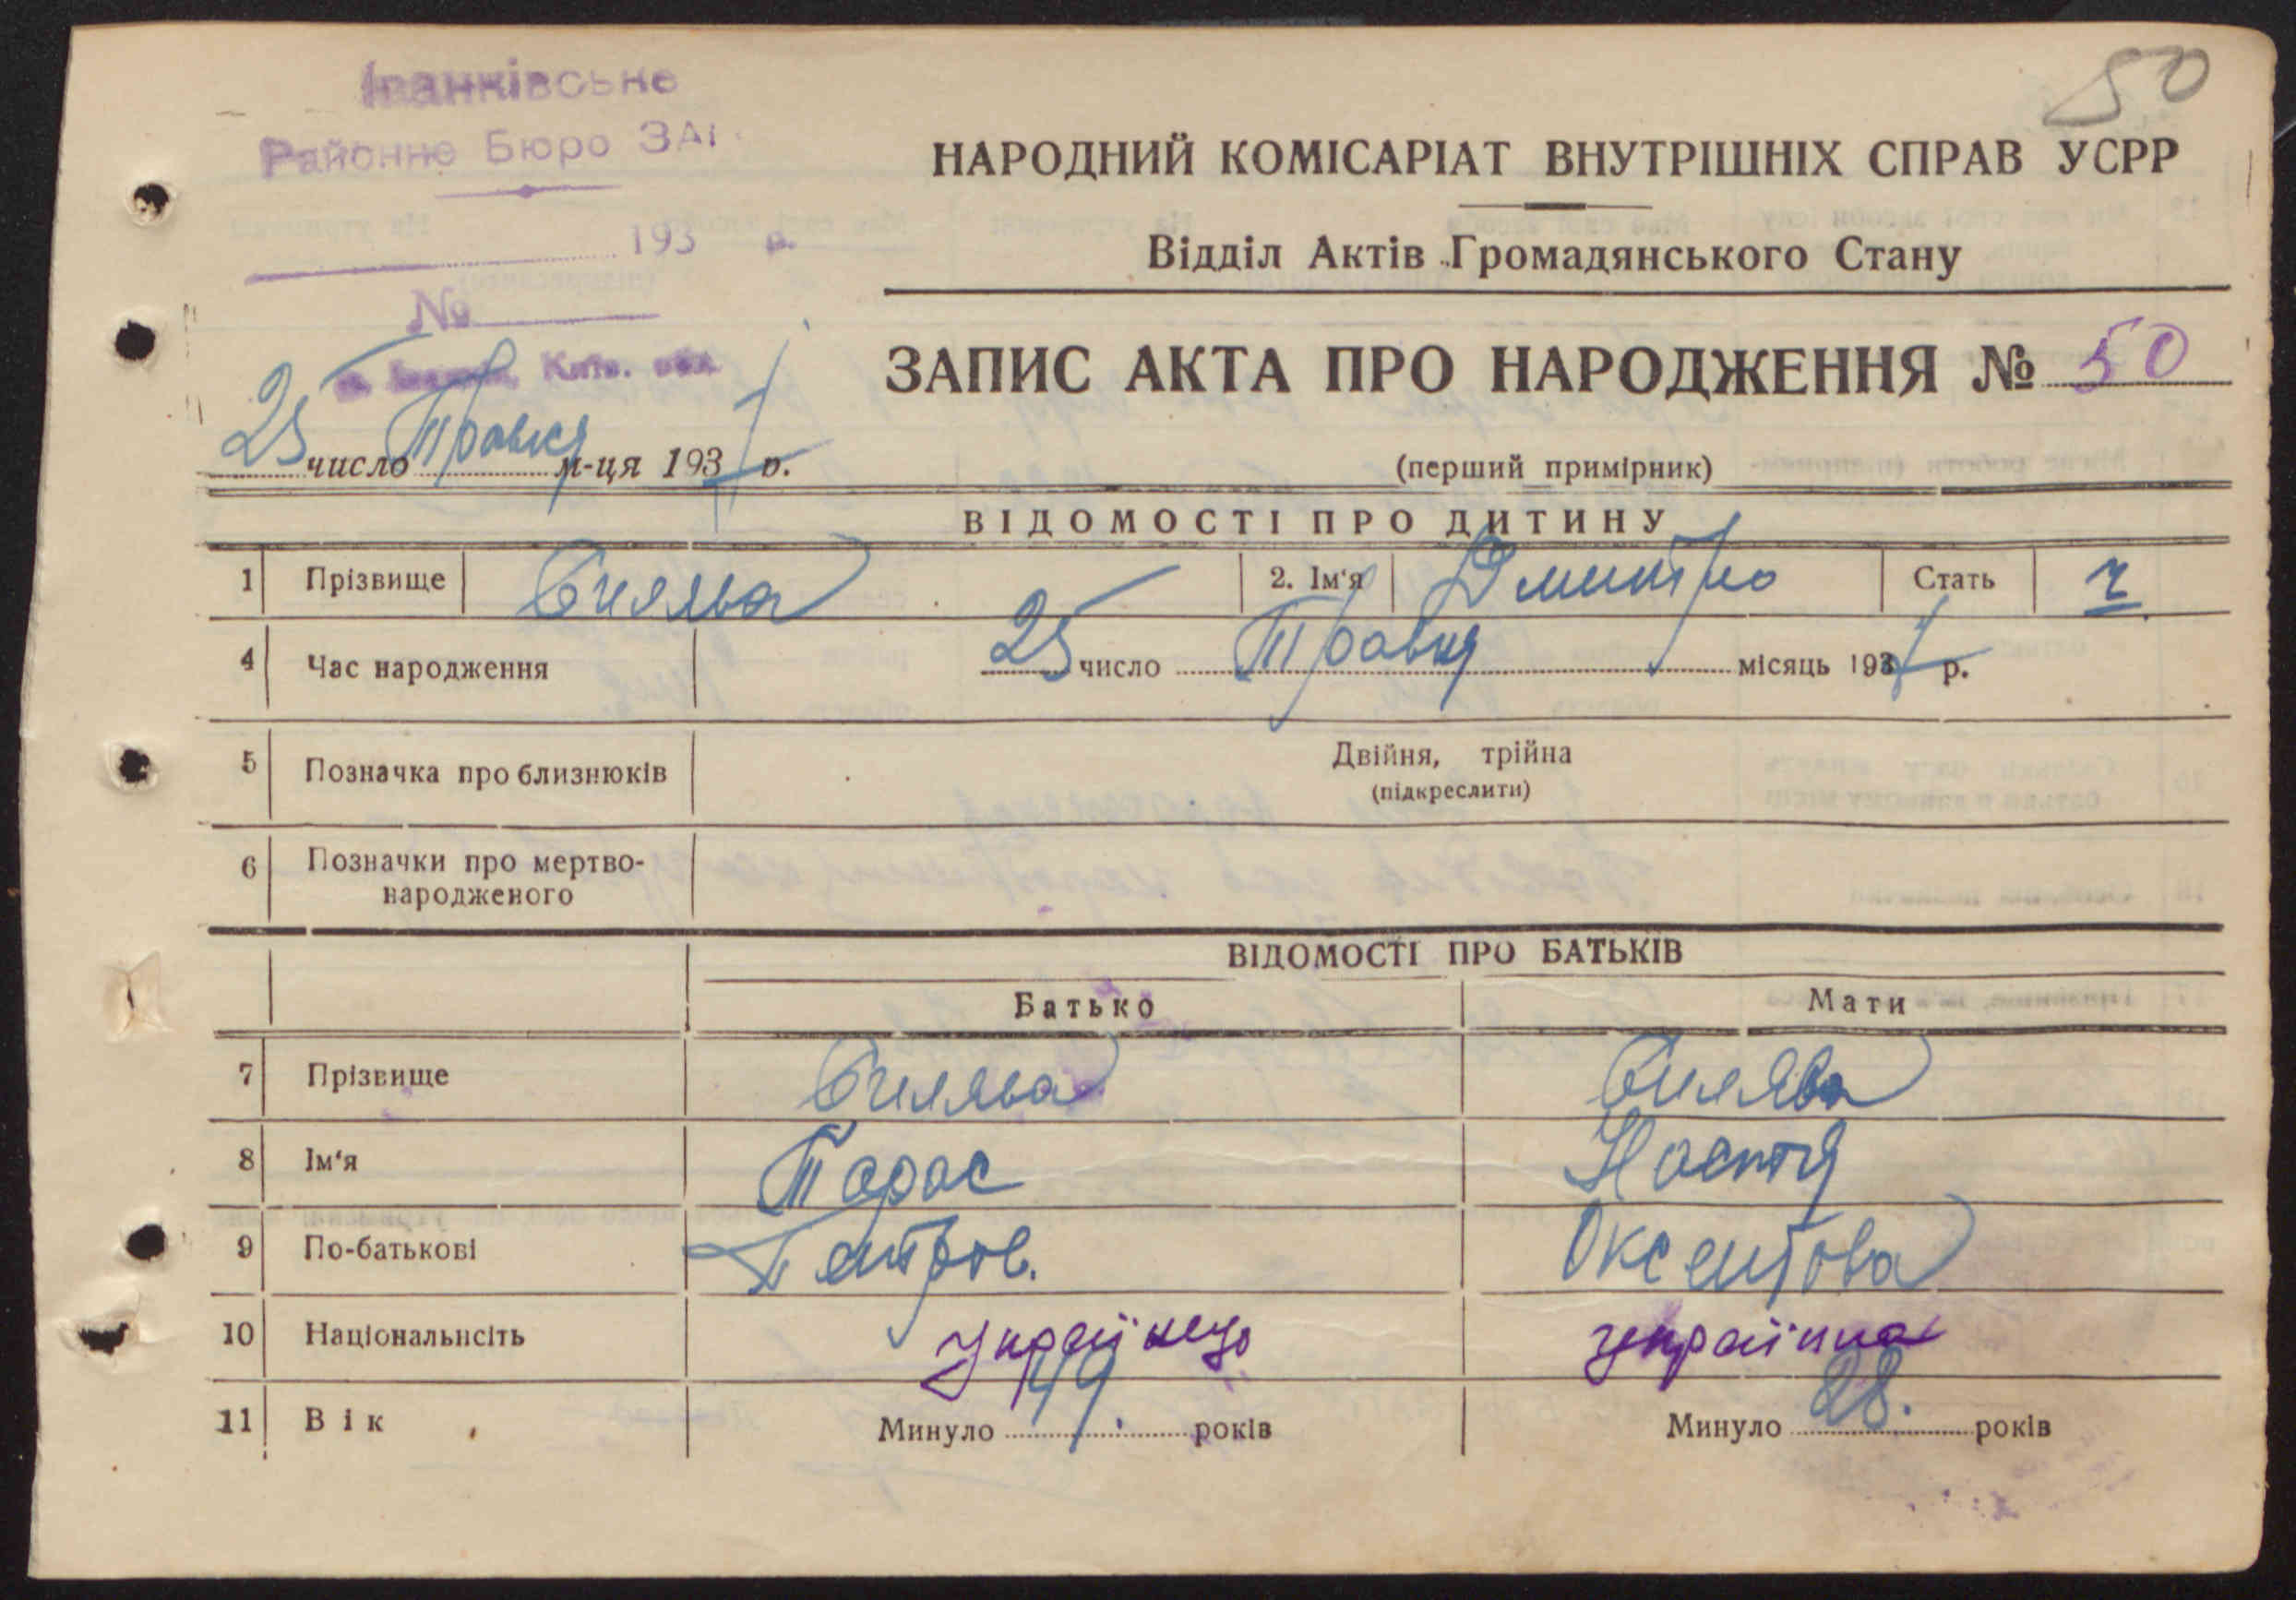 50
Іванківське
Районне Бюро ЗАГ
193 р.
№
Київ. обл.
НАРОДНИЙ КОМІСАРІАТ ВНУТРІШНІХ СПРАВ УСРР
Відділ Актів Громадянського Стану
ЗАПИС АКТА ПРО НАРОДЖЕННЯ № 50
25 число Травня м-ця 1937 р.
(перший примірник)
ВІДОМОСТІ ПРО ДИТИНУ
1 Прізвище 2. Ім'я Дмитро Стать ч
4 Час народження 25 число Травня місяць 1937 р.
5 Позначка про близнюків Двійня, трійна
(підкреслити)
6 Позначки про мертво-
народженого
ВІДОМОСТІ ПРО БАТЬКІВ
Батько Мати
7 Прізвище
8 Ім'я Тарас Настя
9 По-батькові Петров. Оксентова
10 Національнсіть українец українка
11 Вік Минуло 49. років Минуло 28. років